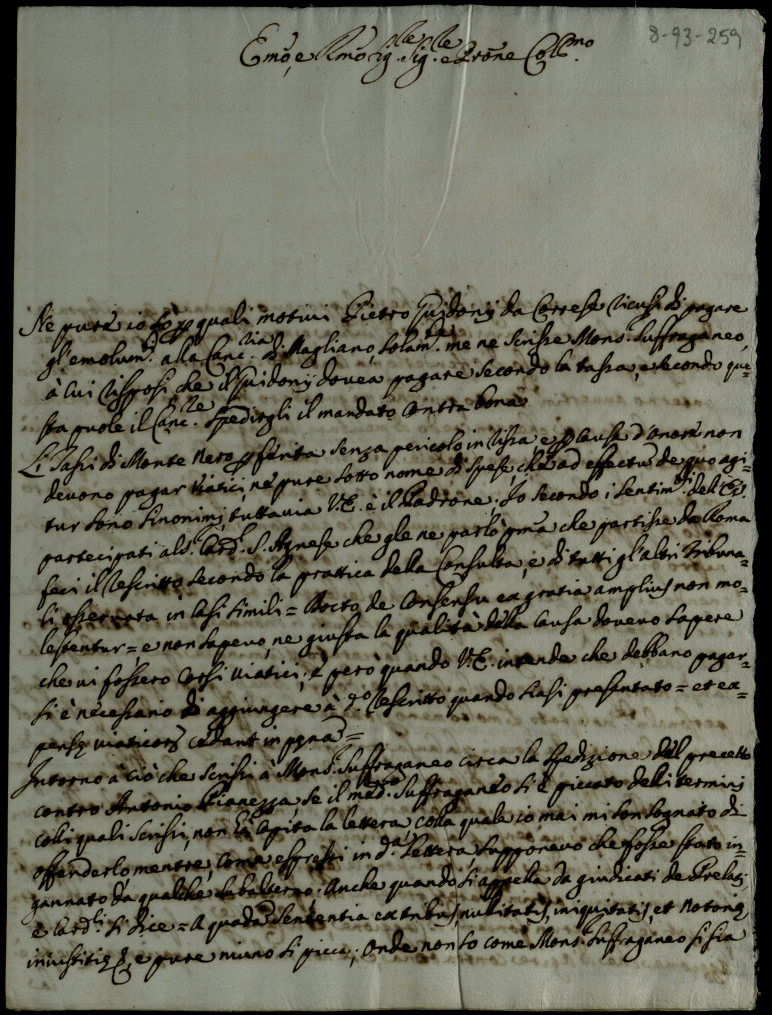 8-93-259
Emo, e Rmo Sig. Sig. e Prone Colmo
Ne pure io sò p quali motivi Pietro Guidonij da Correse ricusi di pagare
gl'emolumti alla Cancria di Magliano, solamte me ne scrisse Mons. Suffraganeo,
à cui risposi che il Guidonij dovea pagare secondo la tassa, e secondo que=
sta puole il Cancre spedirgli il mandato contra bona
Li Tassi di Monte Nero p ferita senza pericolo in rissa e p causa d'onore non
devono pagar viatici, ne pure sotto nome di spese, che ad effectu de quo agi=
tur sono sinonimi, tuttavia V.E. è il Padrone; Io secondo i sentimti dell'E.V.
partecipati al Sr. Card. S. Agnese che gle ne parlò pma che partisse da Roma
feci il rescritto secondo la prattica della Consulta, e di tutti gl'altri Tribuna=
li osservata in casi simili = docto de consensu ex gratia amplius non mo=
lestentur = e non sapevo, ne giusta la qualità della causa dovevo sapere
che vi fossero corsi viatici; e però quando V.E. intenda che debbano pagar=
si è necessario di aggiungere à do rescritto quando siasi presentato = et ex=
pensę viaticorum cedant in pęnam =
Intorno à ciò che scrissi à Mons. Suffraganeo circa la spedizione del precetto
contro Antonio Pianezza, se il medo Suffraganeo si è piccato delli termini
colli quali scrissi, non hà capita la lettera, colla quale io mai mi son sognato di
offenderlo, mentre, come espressi in da lettera, supponevo che fosse stato in=
gannato da qualche subalterno. Anche quando si appella da giudicati de Prelati,
e Cardli si dice = A quadam sententia ex tribus, nullitatis, iniquitatis, et notorię
iniustitię &, e pure niuno si picca; onde non so come Mons. Suffraganeo si sia